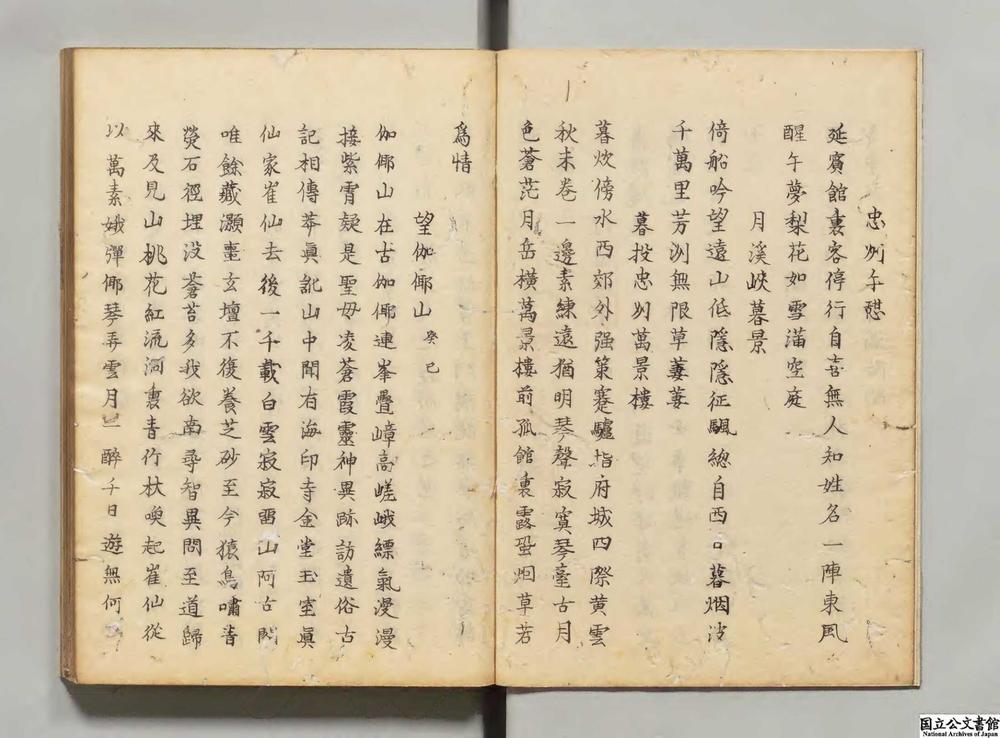 忠州午憇
延賓館裏客停行自喜無人知姓名一陣東風
醒午夢梨花如雪滿空庭
月溪峽暮景
倚船吟望遠山低隱隱征颿總自西口暮烟波
千萬里芳洲無限草萋萋
暮投忠州萬景樓
暮炊傍水西郊外强策蹇驢指府城四際黄雲
秋未卷一邊素練遠猶明琴聲寂寞琴臺古月
色蒼茫月岳橫萬景樓前孤館裏露蛩烟草若
爲情
望伽倻山 癸巳
伽倻山在古伽倻連峯疊嶂高嵯峨縹氣漫漫
接紫霄疑是聖母凌蒼霞靈神異跡訪遺俗古
記相傳莽眞訛山中聞有海印寺金堂玉室眞
仙家崔仙去後一千載白雲寂寂畱山阿古閣
唯餘藏灝噩玄壇不復養芝砂至今猿鳥嘯菁
熒石徑埋没蒼苔多我欲南尋智異問至道歸
來及見山桃花紅流洞裏青竹杖喚起崔仙從
以萬素娥彈倻琴弄雲月一醉千日遊無何
国立公文書館
National Archives of Japan